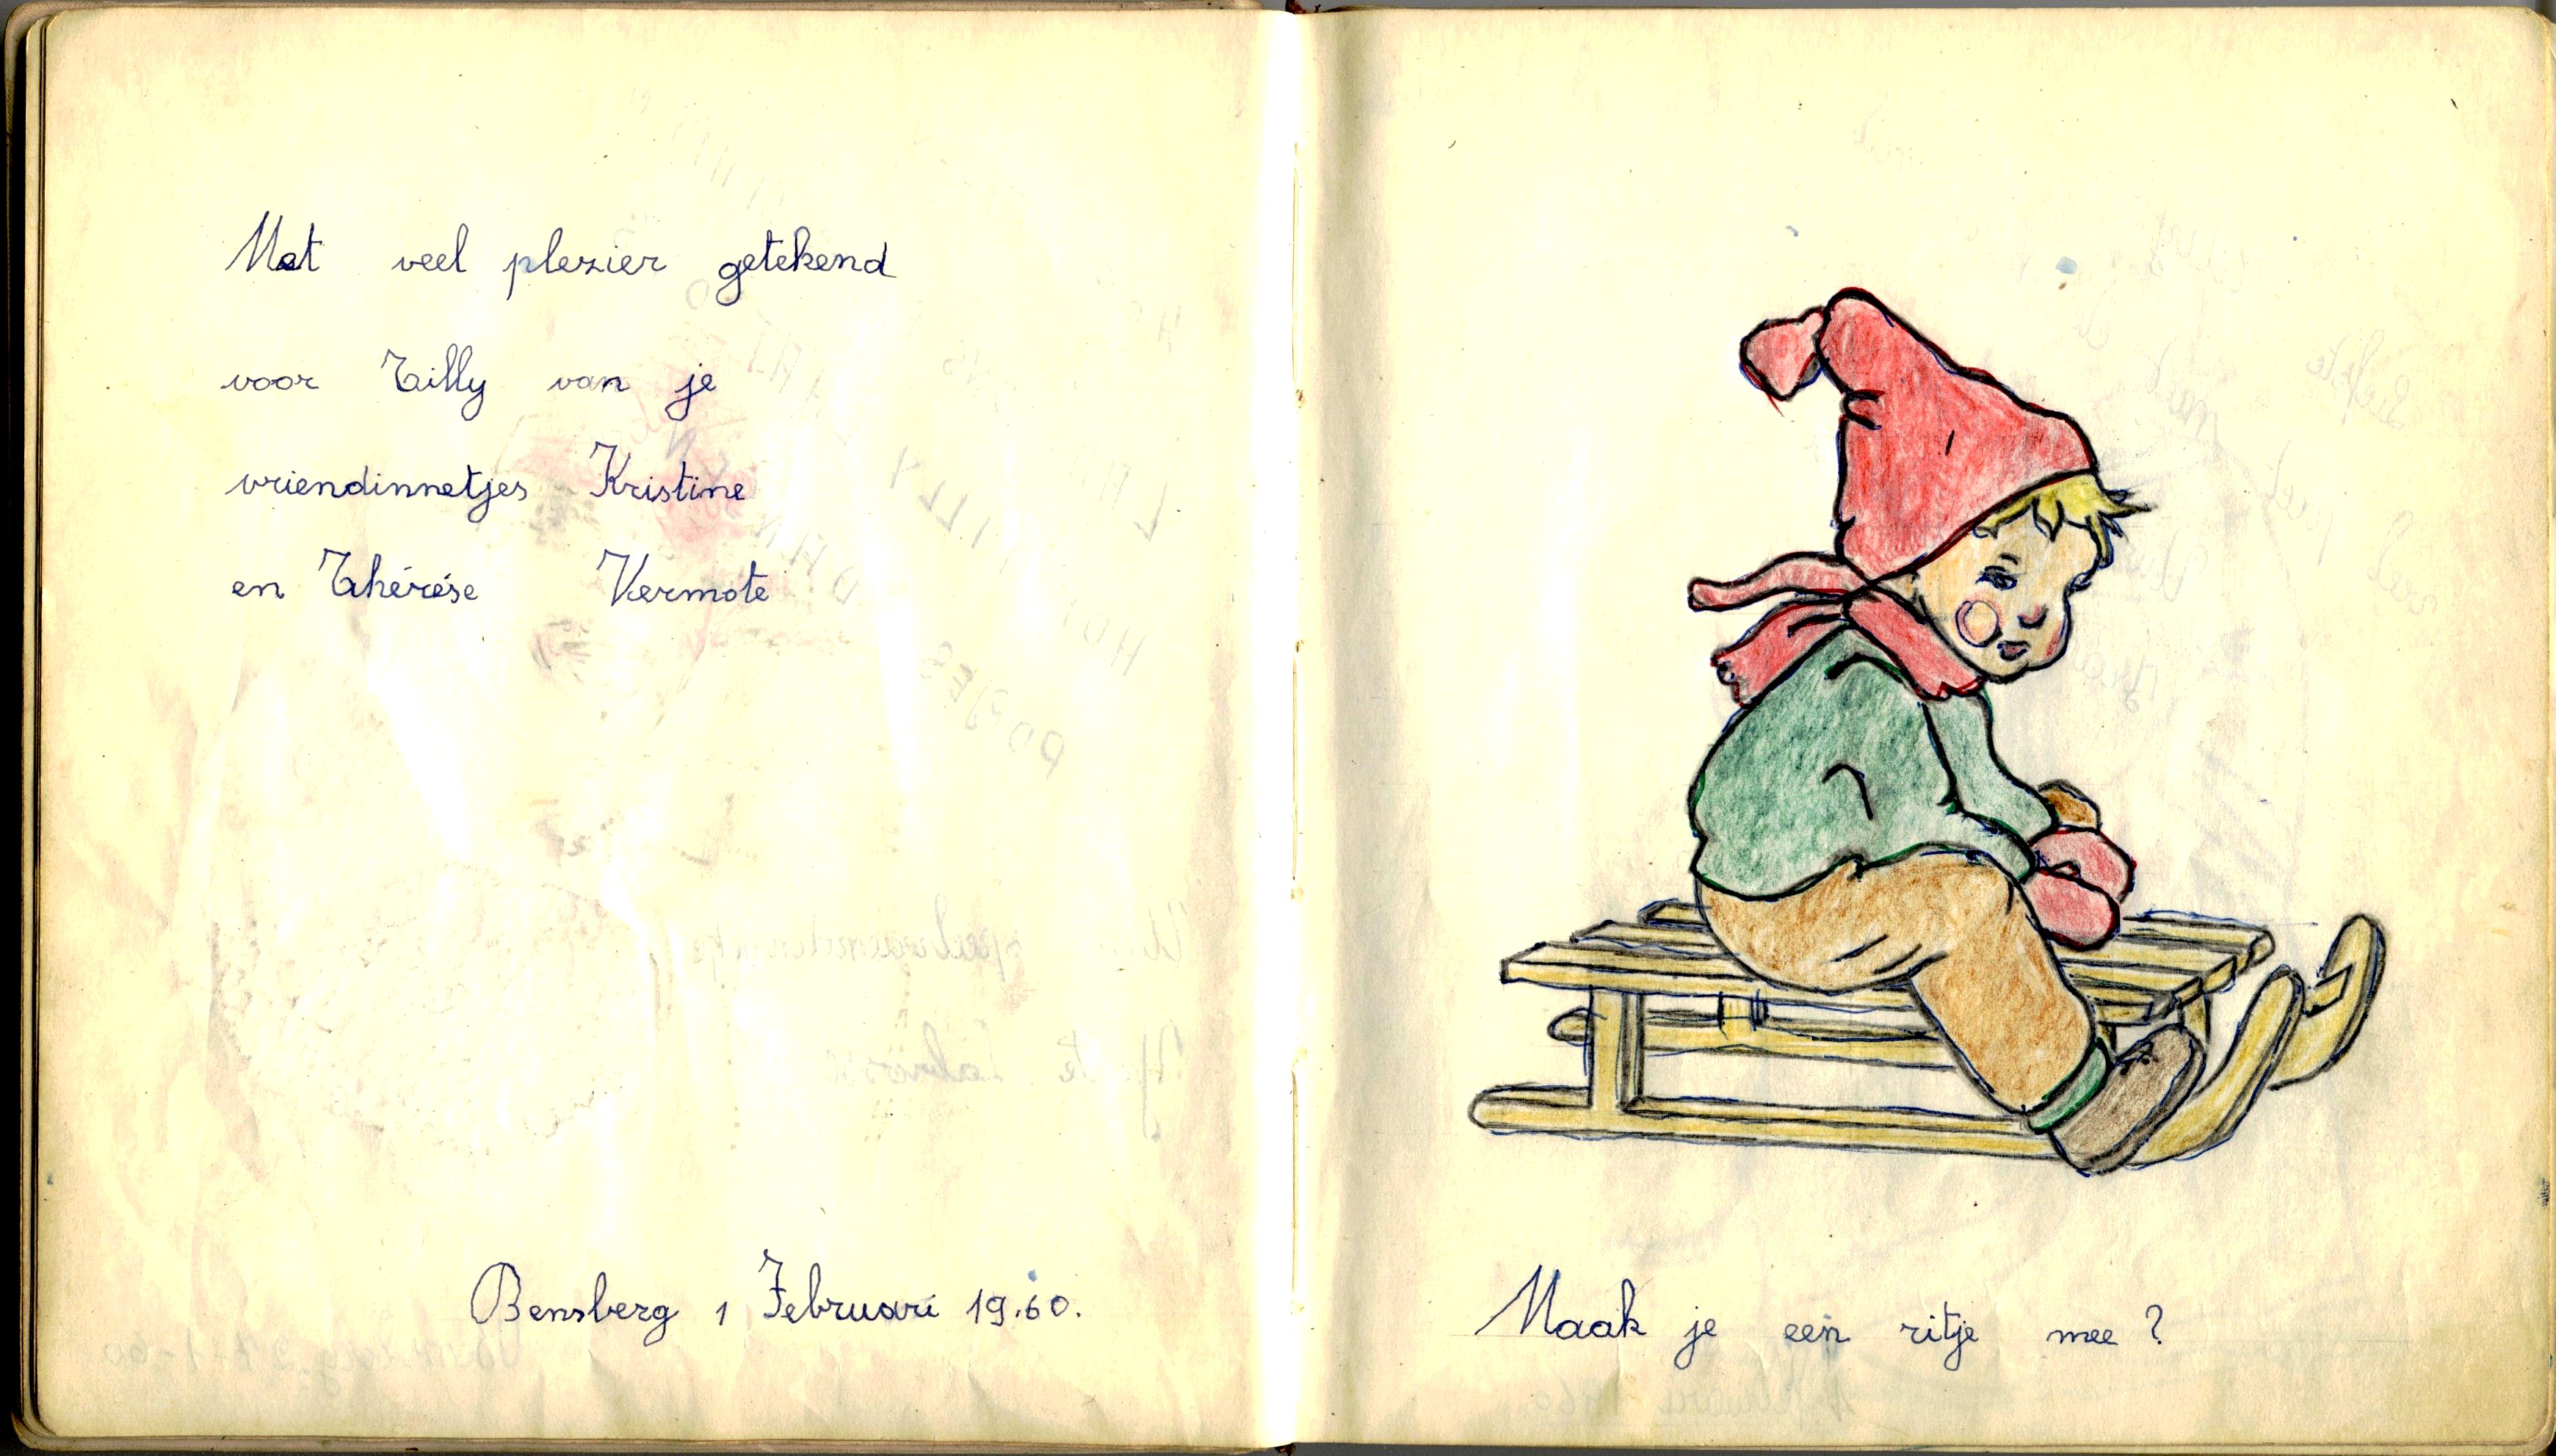 Met veel plezier getekend
voor Tilly van je
vriendinnetjes Kristine
en Thérése Vermote
Bensberg 1 Februari 19.60.
Maak je een ritje mee ?